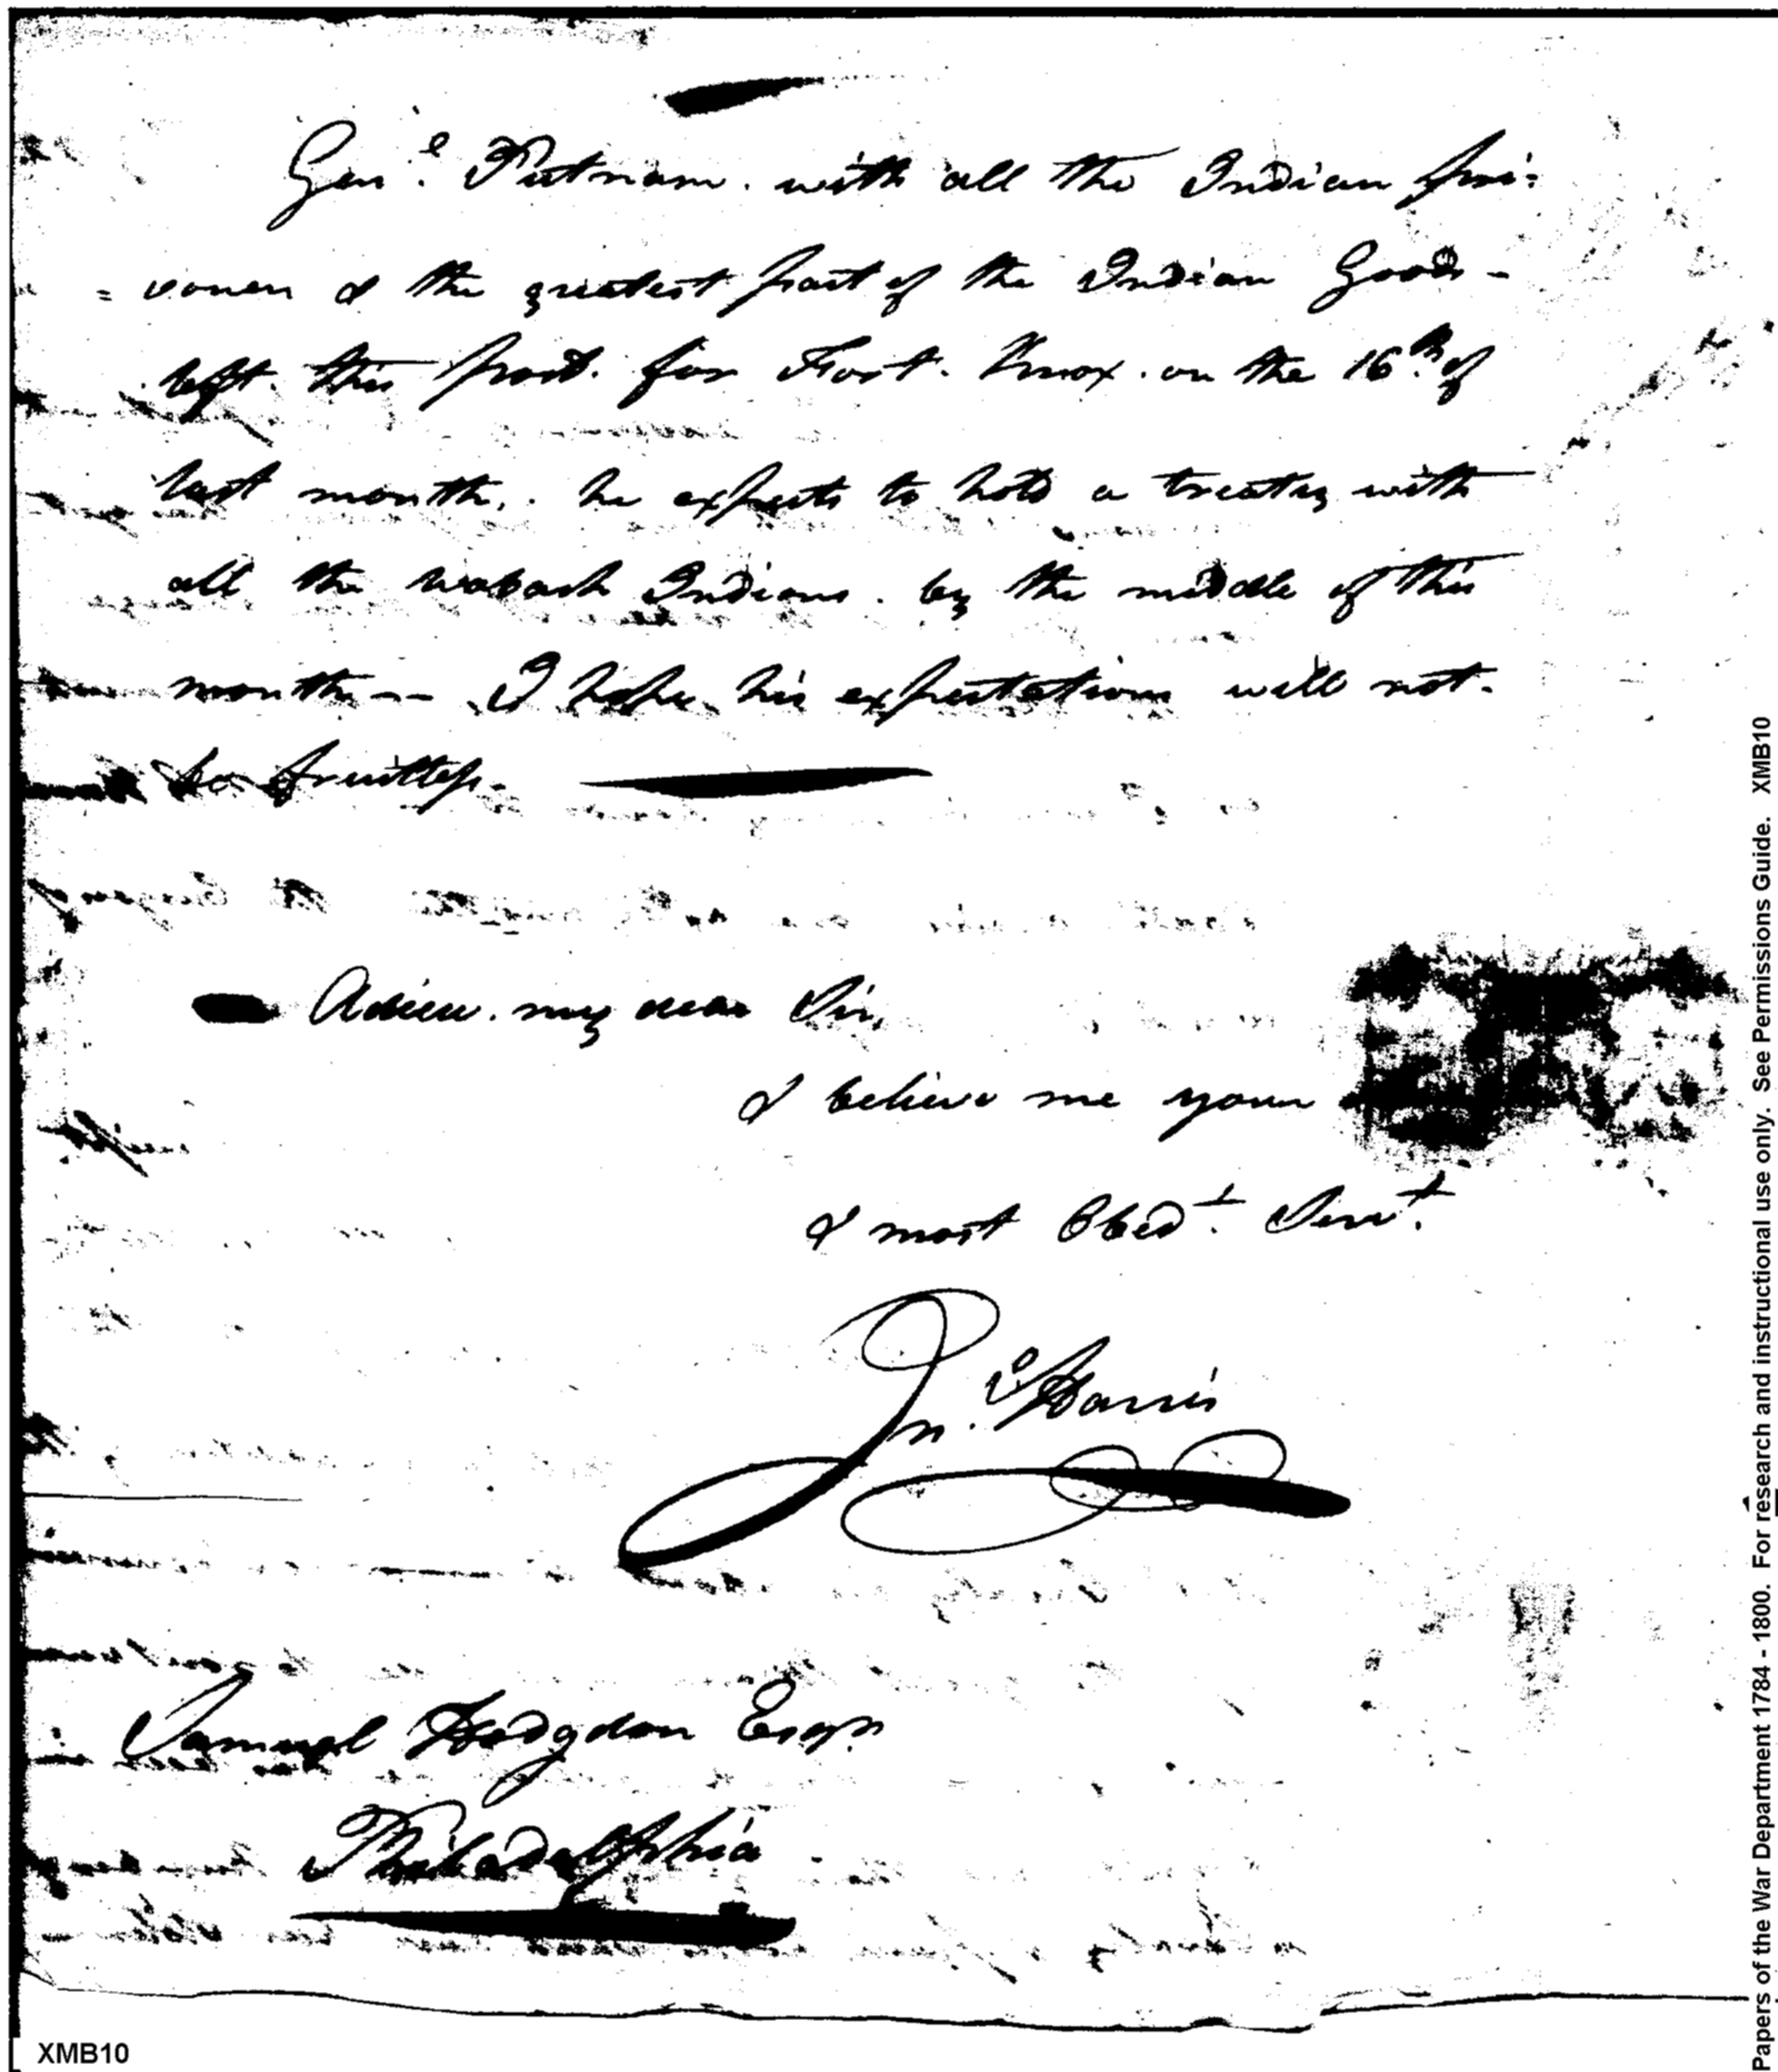 Genl. Putnam. with all the Indian pri=
=soners & the greatest part of the Indian Goods -
left. this post. for Fort. Knox. on the 16th. of
last month. he expects to hold a treaty with
all the wabash Indians. by the middle of this
month -- I hope his expectations will not.
be fruitless.
Adieu. my dear Sir,
& believe me your
& most Obedt. Servt.
Jno. Harris
Samuel Hodgdon Esqr.
Philadelphia
XMB10
Papers of the War Department 1784 - 1800. For research and instructional use only. See Permissions Guide. XMB10